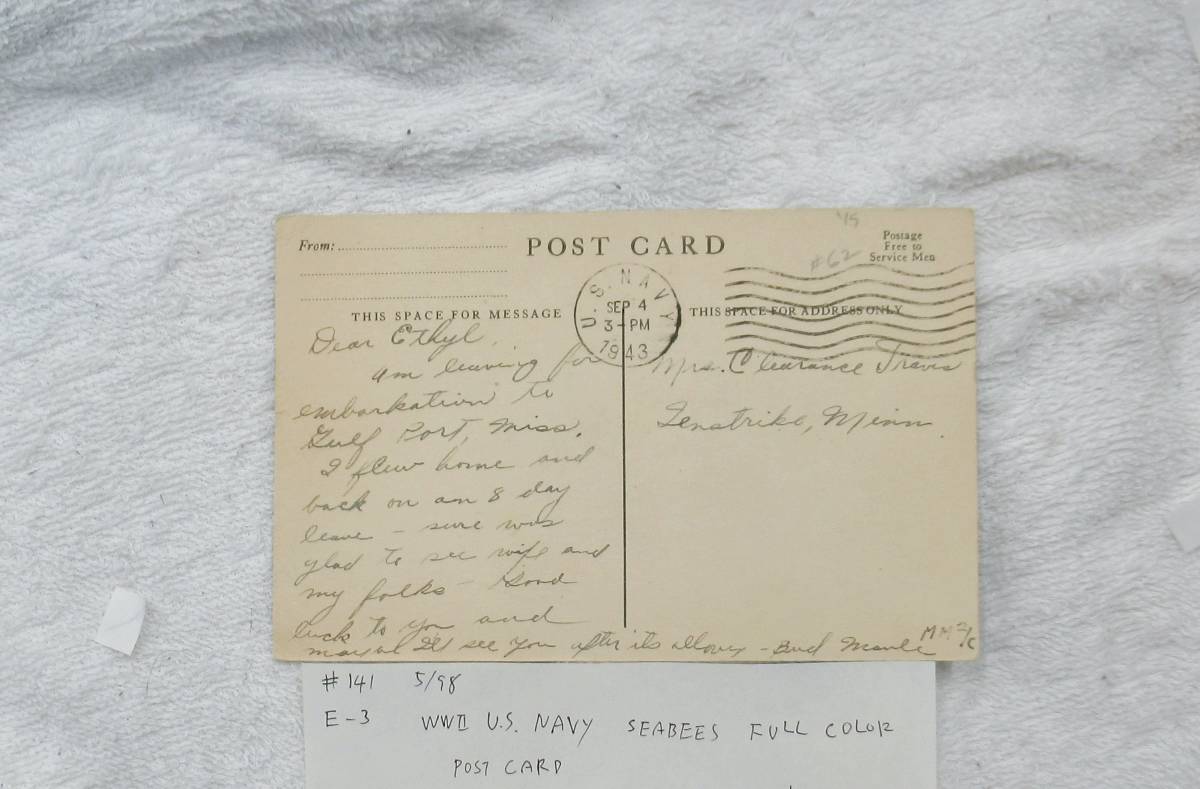 From:
POST CARD
'45
#62
Postage
Free to
Service Men
THIS SPACE FOR MESSAGE
U.S. NAVY
SEP 4
3-PM
1943
THIS SPACE FOR ADDRESS ONLY
Dear Ethyl,
am leaving for
embarkation to
Gulf Port, Miss.
I flew home and
back on an 8 day
leave - sure was
glad to see wife and
my folks - Good
luck to you and
maybe I'll see you after its all over - Bud
MM 2/c
Mrs. Clearance Travis
Tenstrike, Minn.
#141 5/98
E-3 WWII U.S. NAVY SEABEES FULL COLOR
POST CARD